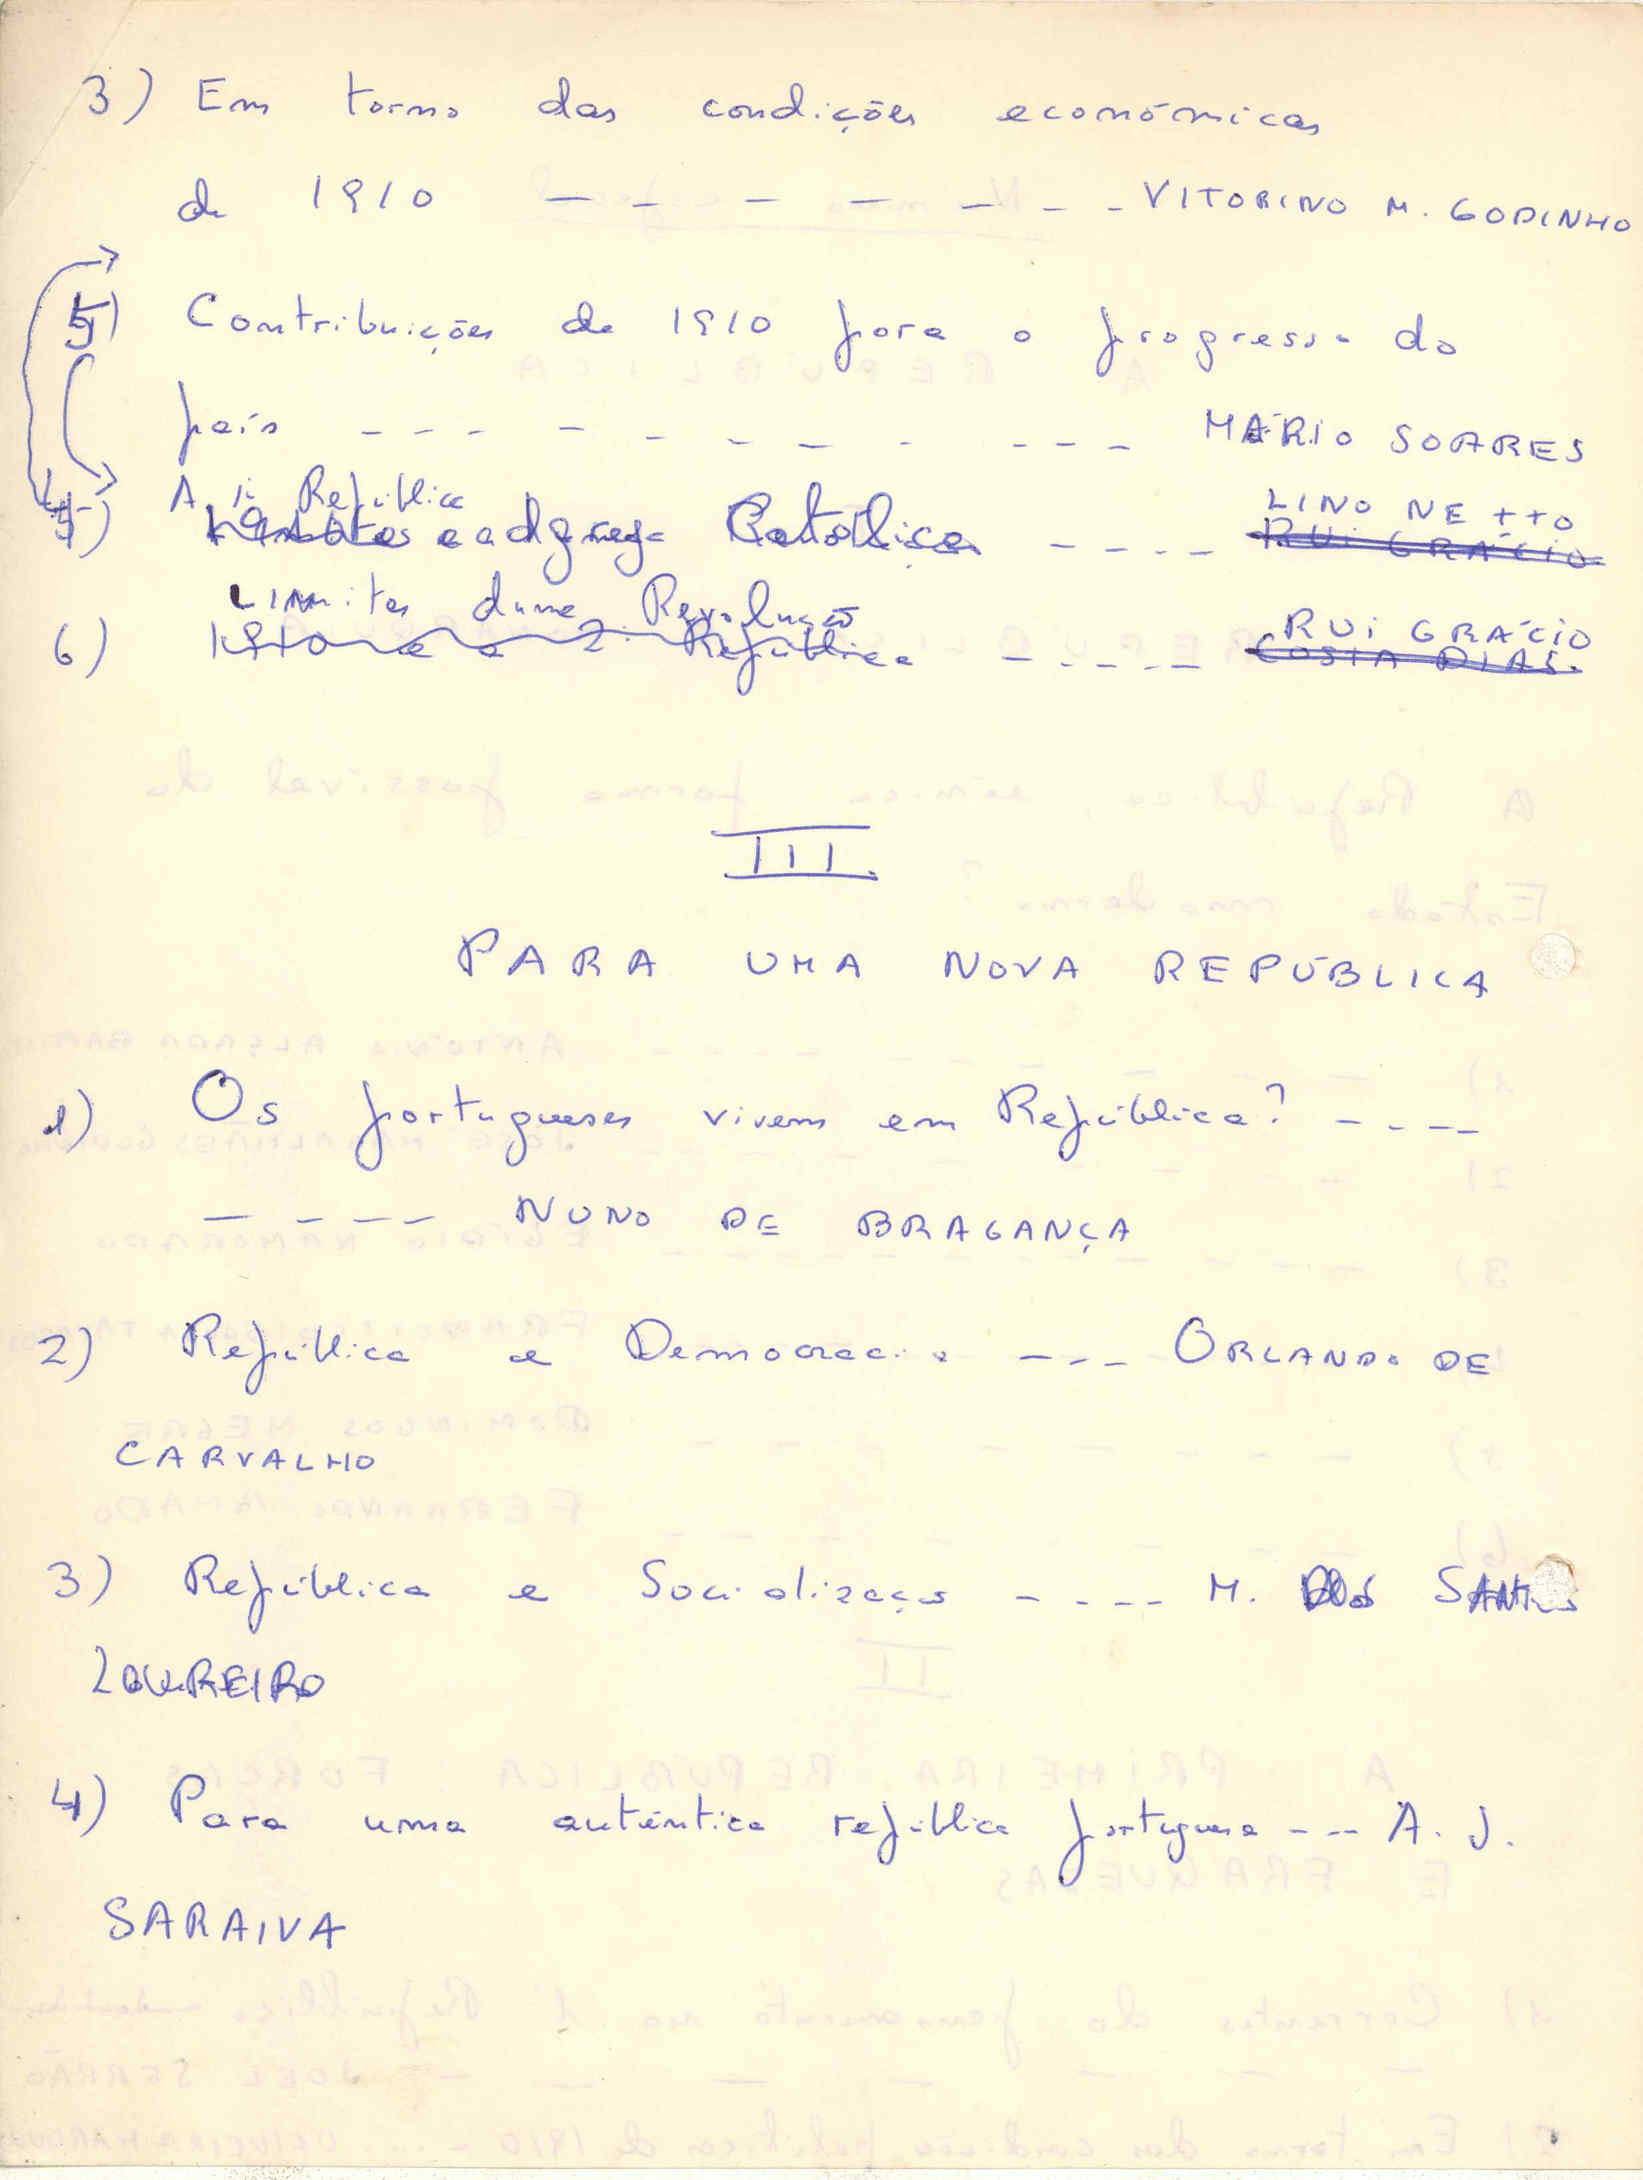 3) Em torno das condições económicas
de 1910 - - - - - - - VITORINO M. GODINHO
5) Contribuições de 1910 para o progresso do
país - - - - - - - - - - - MÁRIO SOARES
A 1ª República LINO NETTO
4) e a Igreja Católica - - - - RUI GRÁCIO
Limites duma Revolução RUI GRÁCIO
6) 1910 e a 2ª República - - - - - COSTA DIAS
III
PARA UMA NOVA REPÚBLICA
1) Os portugueses vivem em República? - - - -
- - - - - NUNO DE BRAGANÇA
2) República e Democracia - - - ORLANDO DE
CARVALHO
3) República e Socialização - - - - M. DOS SANTOS
LOUREIRO
4) Para uma autêntica república portuguesa - - - A. J.
SARAIVA